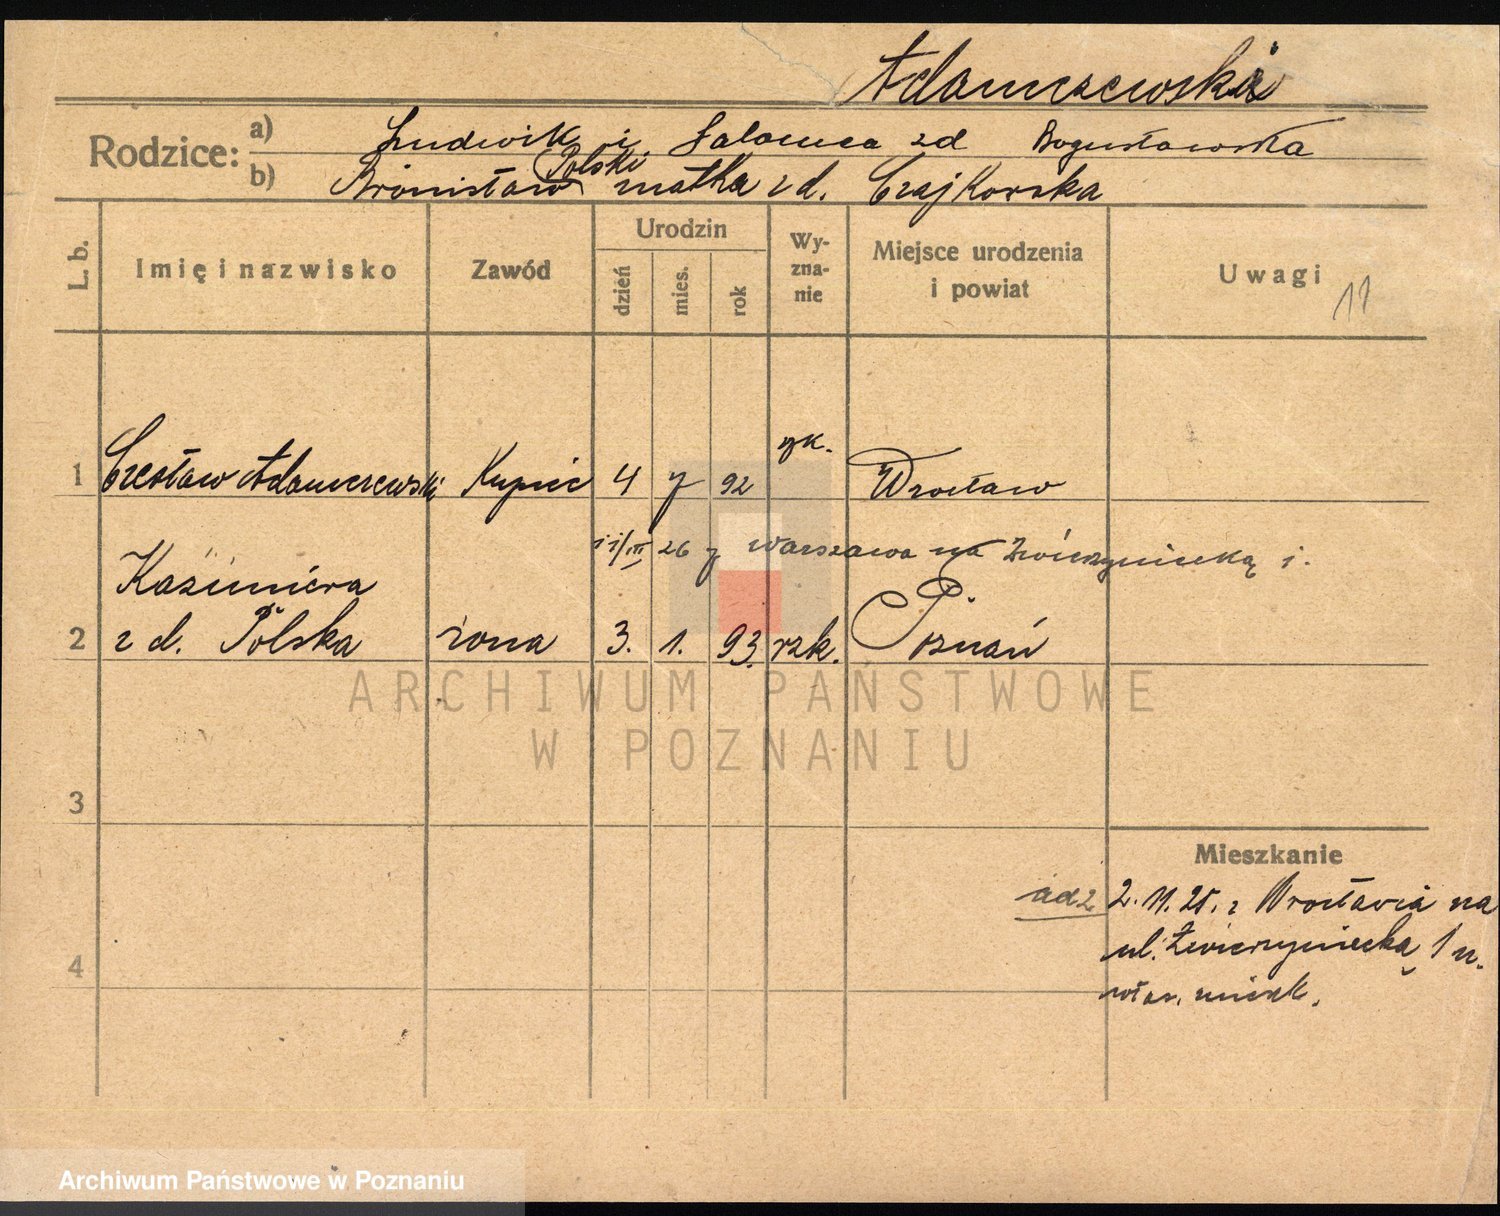 Adamczewski
Rodzice:
a) Ludwik i Salomea zd Bogusławska
b) Bronisław Polski matka z d. Czajkowska
L. b.
Imię i nazwisko
Zawód
Urodzin
dzień
mies.
rok
Wy-
zna-
nie
Miejsce urodzenia
i powiat
Uwagi
11
1 Czesław Adamczewski Kupiec 4 7 92 rzk. Wrocław
11/III 26 z Warszawa na Zwierzyniecką 1.
Kazimiera
2 z d. Polska żona 3. 1. 93. rzk. Poznań
3
4
Mieszkanie
ad 2 2. 11. 25. z Wrocławia na
ul. Zwierzyniecką 1 w.
własn. mieszk.
ARCHIWUM PAŃSTWOWE
W POZNANIU
Archiwum Państwowe w Poznaniu